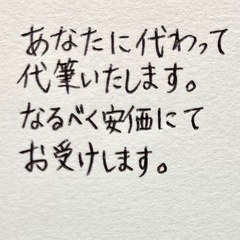 あなたに代わって
代筆いたします。
なるべく安価にて
お受けします。